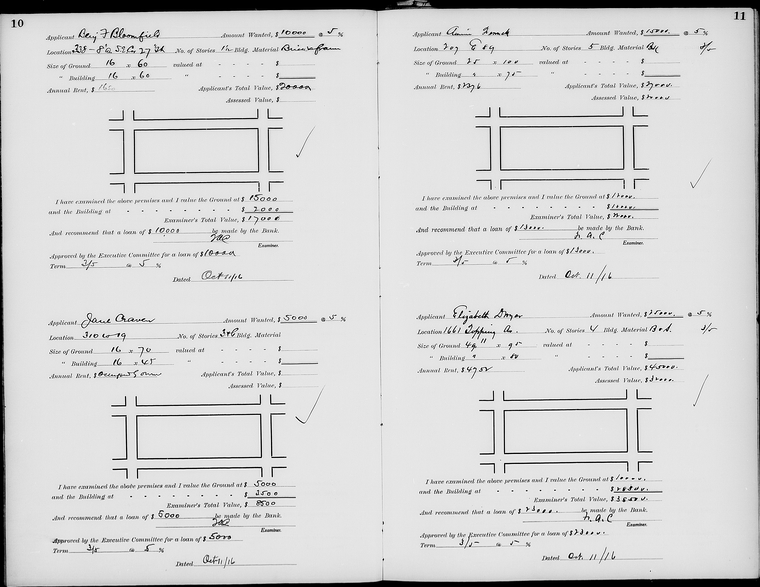 10
Applicant Benj F Bloomfield Amount Wanted, $ 10000 @ 5 %
Location No. of Stories Bldg. Material
Size of Ground 16 x 60 valued at - - - - $
" Building 16 x 60 " - - - - $
Annual Rent, $ Applicant's Total Value, $ 20000
Assessed Value, $
I have examined the above premises and I value the Ground at $ 15000
and the Building at - - - - - - - - - $ 2000
Examiner's Total Value, $ 17000
And recommend that a loan of $ 10000 be made by the Bank.
Examiner.
Approved by the Executive Committee for a loan of $ 10000
Term 3/5 @ 5 %
Dated Oct 11/16
Applicant Jane Craven Amount Wanted, $ 5000 @ 5 %
Location 310 W 19 No. of Stories Bldg. Material
Size of Ground 16 x 70 valued at - - - - $
" Building 16 x 45 " - - - - $
Annual Rent, $ Applicant's Total Value, $
Assessed Value, $
I have examined the above premises and I value the Ground at $ 5000
and the Building at - - - - - - - - - $ 3500
Examiner's Total Value, $ 8500
And recommend that a loan of $ 5000 be made by the Bank.
Examiner.
Approved by the Executive Committee for a loan of $ 5000
Term 3/5 @ 5 %
Dated Oct 11/16
11
Applicant Annie Amount Wanted, $ 15000. @ 5 %
Location No. of Stories 5 Bldg. Material Bk 3/5
Size of Ground 25 x 100 valued at - - - - $
" Building " x 75 " - - - - $
Annual Rent, $ 2376 Applicant's Total Value, $
Assessed Value, $
I have examined the above premises and I value the Ground at $
and the Building at - - - - - - - - - $
Examiner's Total Value, $
And recommend that a loan of $ 13000. be made by the Bank.
F. A. C
Examiner.
Approved by the Executive Committee for a loan of $ 13000.
Term 3/5 @ 5 %
Dated Oct. 11/16
Applicant Elizabeth Dwyer Amount Wanted, $ 25000. @ 5 %
Location 1661 Topping Av. No. of Stories 4 Bldg. Material 3/5
Size of Ground x 95 valued at - - - - $
" Building " x 80 " - - - - $
Annual Rent, $ 4752 Applicant's Total Value, $ 45000.
Assessed Value, $
I have examined the above premises and I value the Ground at $ 10000.
and the Building at - - - - - - - - - $ 28500.
Examiner's Total Value, $ 38500.
And recommend that a loan of $ 23000. be made by the Bank.
F. A. C
Examiner.
Approved by the Executive Committee for a loan of $ 23000.
Term 3/5 @ 5 %
Dated Oct. 11/16